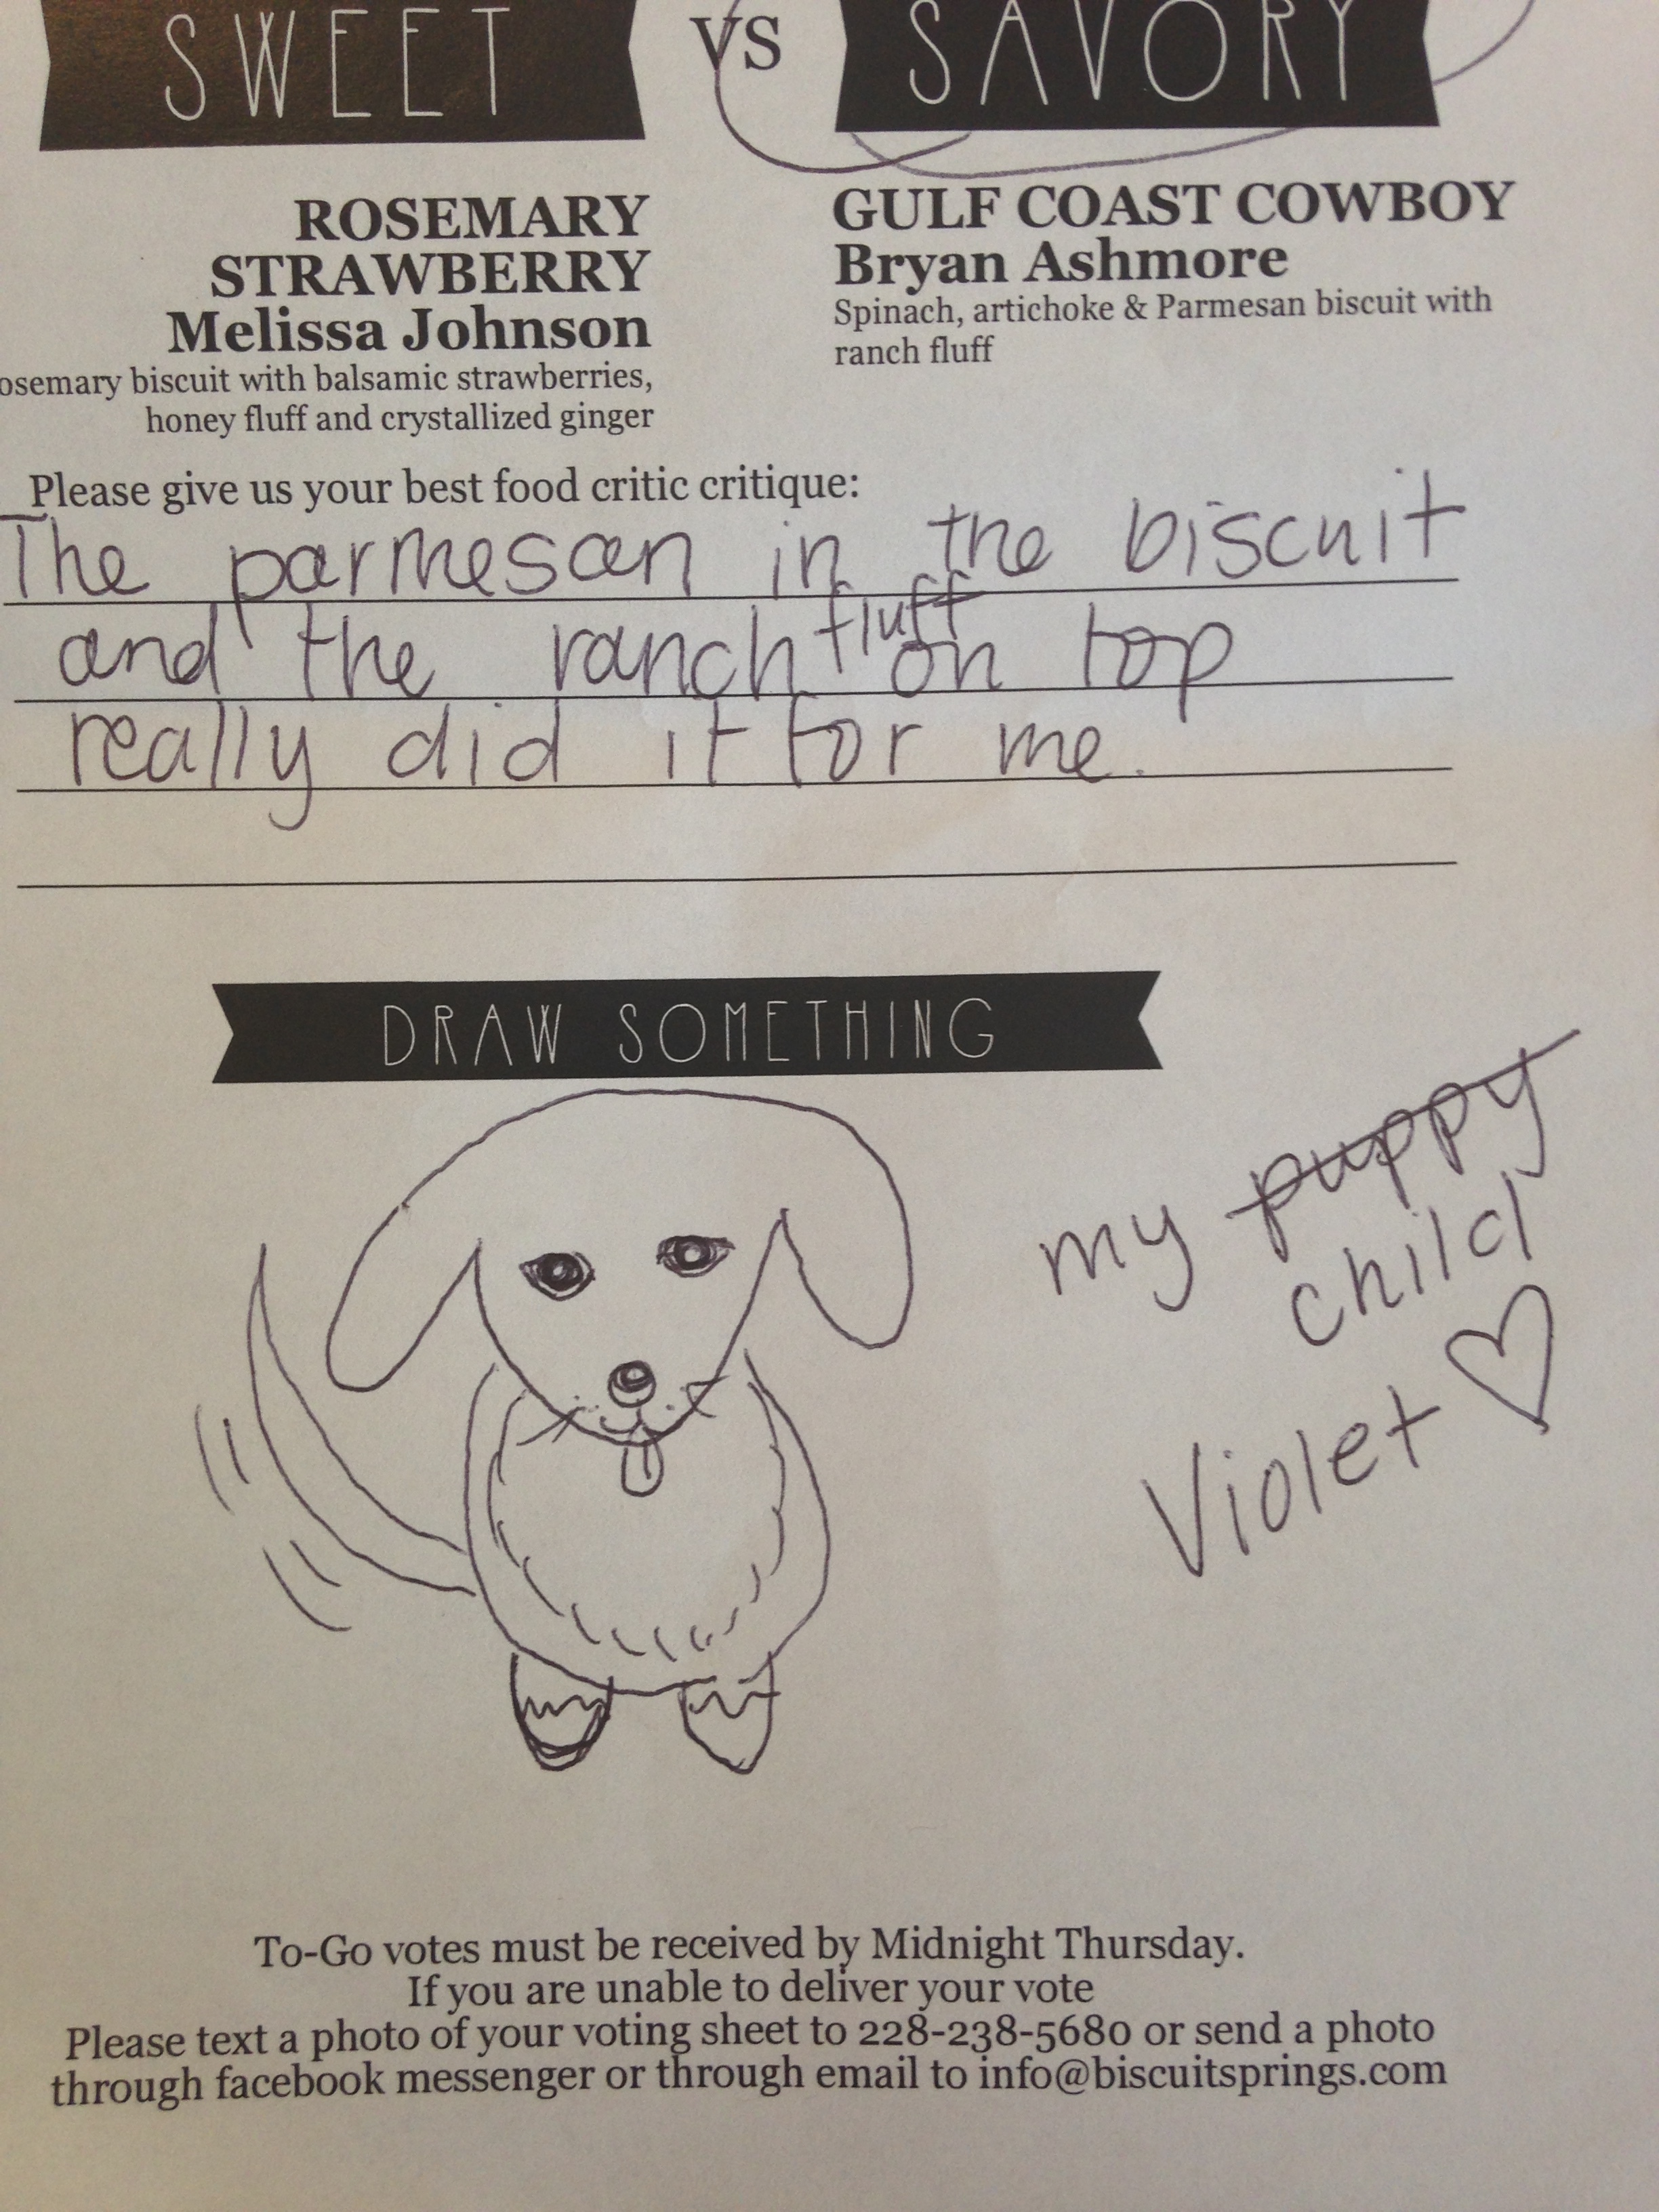 SWEET VS SAVORY
ROSEMARY
STRAWBERRY
Melissa Johnson
osemary biscuit with balsamic strawberries,
honey fluff and crystallized ginger
GULF COAST COWBOY
Bryan Ashmore
Spinach, artichoke & Parmesan biscuit with
ranch fluff
Please give us your best food critic critique:
The parmesan in the biscuit
and the ranch fluff on top
really did it for me.
DRAW SOMETHING
my puppy
child
Violet
To-Go votes must be received by Midnight Thursday.
If you are unable to deliver your vote
Please text a photo of your voting sheet to 228-238-5680 or send a photo
through facebook messenger or through email to info@biscuitsprings.com